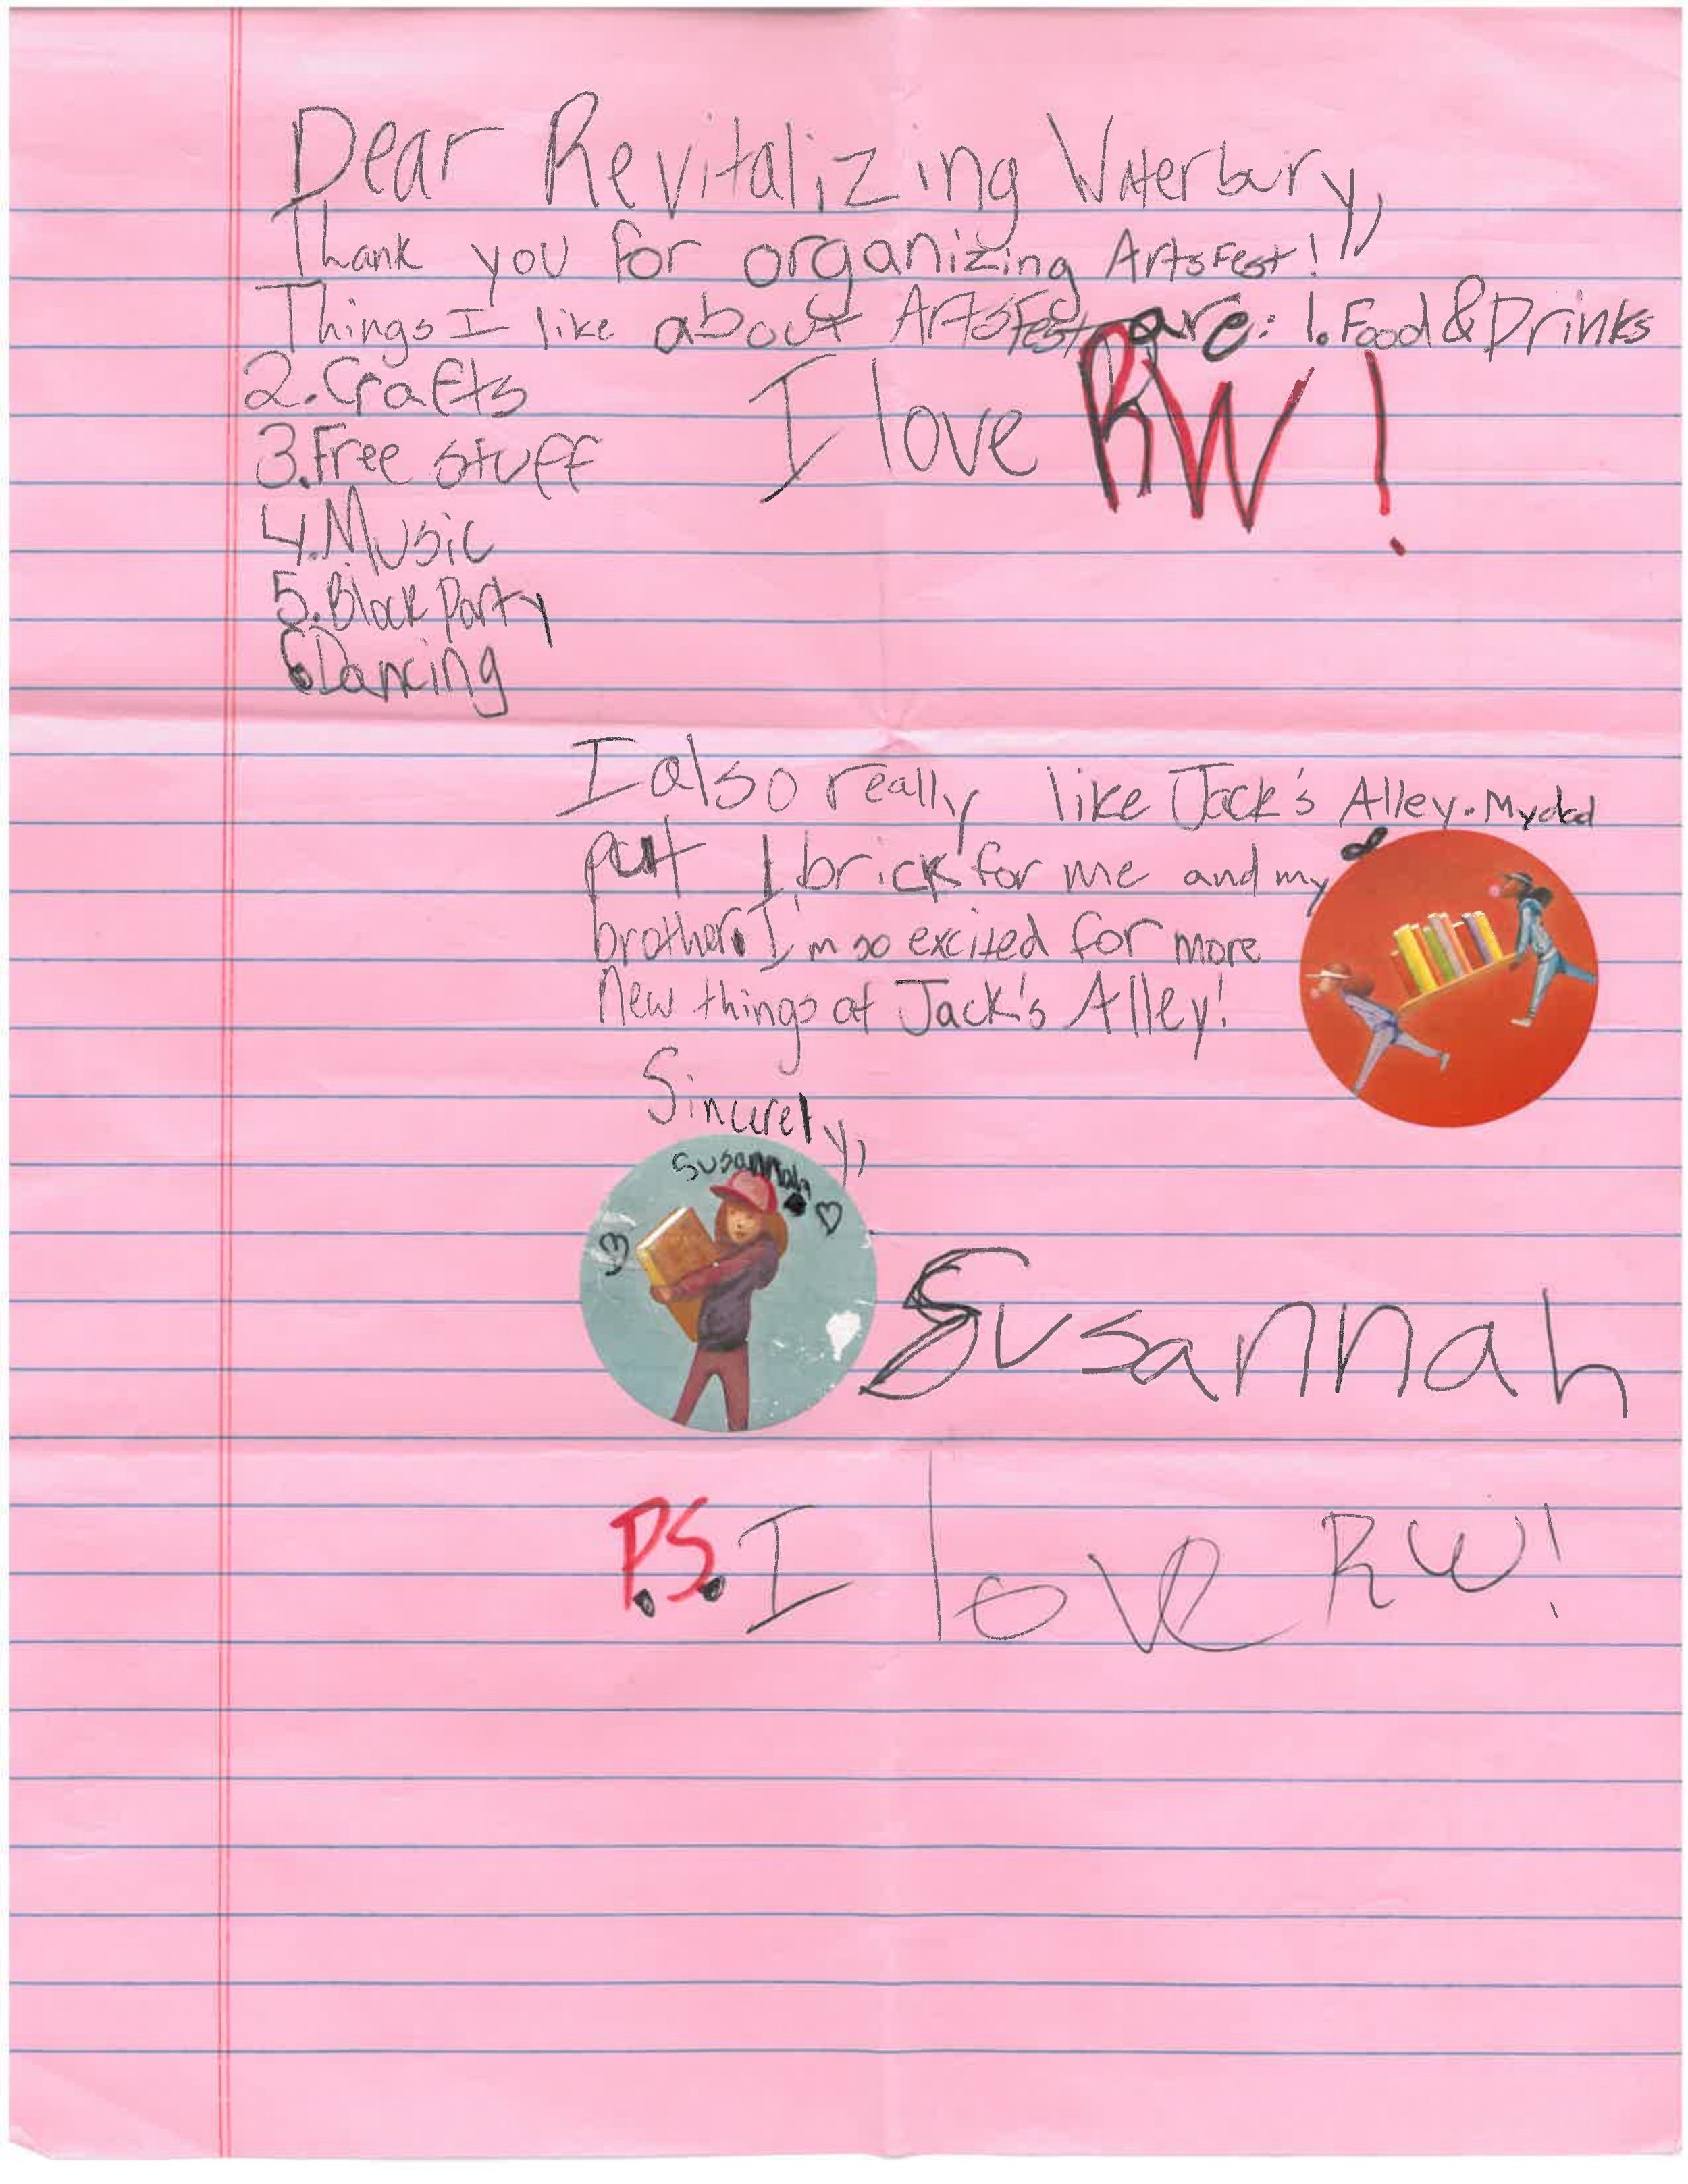 Dear Revitalizing Waterbury,
Thank you for organizing ArtsFest!
Things I like about ArtsFest are: 1. Food & Drinks
2. Crafts
I love RW!
3. Free stuff
4. Music
5. Block Party
6 Dancing
I also really like Jack's Alley. My dad
put 1 brick for me and my
brother. I'm so excited for more
New things at Jack's Alley!
Sincerely,
Susannah
Susannah
P.S. I love RW!